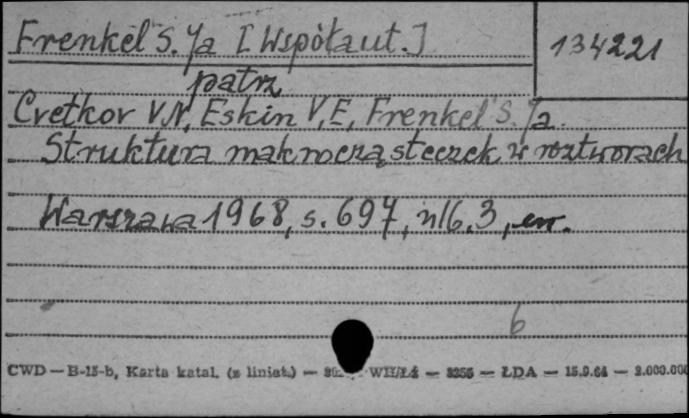 Frenkel' S. Ja [Współaut.]
134221
patrz
Cvetkov V,N, Eskin V,E, Frenkel' S. Ja.
Struktura makrocząsteczek w roztworach
Warszawa 1968, s. 697, nlb. 3, err.
6
CWD — B-15-b, Karta katal. (z liniat.) — WH/Łź — 3256 — ŁDA — 15.9.64 — 2.000.000